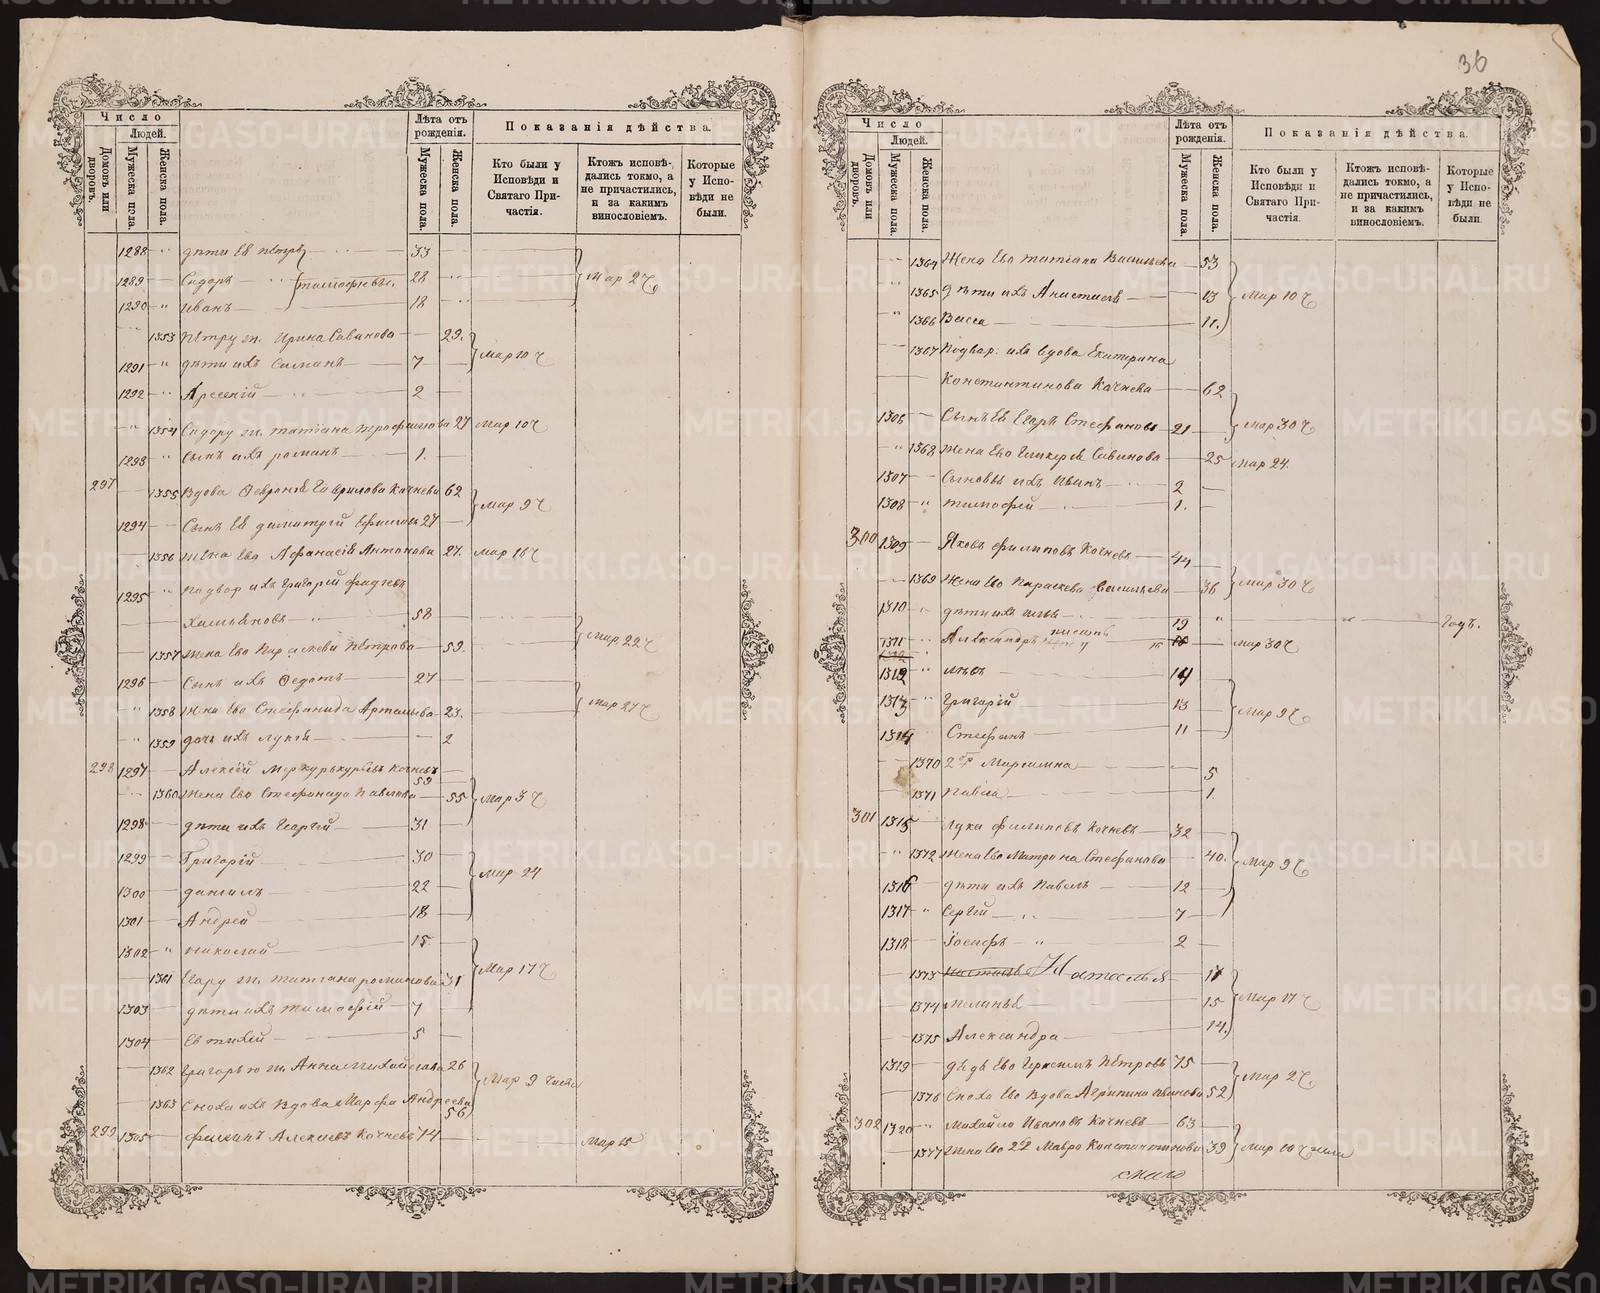 36
Число
Людей.
Домовъ или дворовъ.
Мужеска пола.
Женска пола.
Лѣта отъ рожденія.
Мужеска пола.
Женска пола.
Показанія дѣйства.
Кто были у Исповѣди и Святаго Причастія.
Ктожъ исповѣдались токмо, а не причастились, и за какимъ винословіемъ.
Которые у Исповѣди не были.
1288 дѣти ея Петръ 33
1289 Сидоръ Тимофѣевы 28 Мар 27
1290 Иванъ 18
1353 Петру ж. Ирина Саванова 29.
1291 дѣти ихъ Симанъ 7 Мар 10 ч
1292 Арсеній 2
1354 Сидору ж. Татіана Трофимова 27 Мар 10 ч
1293 Сынъ ихъ Романъ 1.
297 1355 Вдова Февронія Гаврилова Кочнева 62
Мар 9 ч
1294 Сынъ ея Димитрій Ефимовъ 27
1356 Жена его Афанасія Антонова 27. Мар 16 ч
1295 Подвор ихъ Григорій Фадѣевъ
58
Мар 22 ч
1357 Жена его Параскева Петрова 59.
1296 Сынъ ихъ Федотъ 27
Мар 27 ч
1358 Жена его Стефанида Артемьева 23.
1359 дочь ихъ Лукія 2
298 1297 Алексѣй Меркурьевъ Кочневъ 59
1360 Жена его Стефанида Павлова 55 Мар 3 ч
1298 дѣти ихъ Георгій 31
1299 Григорій 30
Мар 24
1300 Даніилъ 22
1301 Андрей 18
1302 Николай 15
Мар 17 ч
1361 Егору ж. Татіана Романова 31
1303 дѣти ихъ Тимофей 7
1304 Евтихій 5
1362 Григорью ж. Анна Михайлова 26
Мар 9 числа
1363 Сноха ихъ вдова Марфа Андреева 56
299 1305 Филипъ Алексѣевъ Кочневъ 74 Мар 15
Число
Людей.
Домовъ или дворовъ.
Мужеска пола.
Женска пола.
Лѣта отъ рожденія.
Мужеска пола.
Женска пола.
Показанія дѣйства.
Кто были у Исповѣди и Святаго Причастія.
Ктожъ исповѣдались токмо, а не причастились, и за какимъ винословіемъ.
Которые у Исповѣди не были.
1364 Жена его Татіана Васильева 53
1365 дѣти ихъ Анастасія 13 Мар 10 ч
1366 Васса 11.
1367 Подвор. ихъ вдова Екатерина
Константинова Кочнева 62
1306 Сынъ ея Егоръ Стефановъ 21 Мар 30 ч
1368 Жена его Гликерія Савинова 25 Мар 24.
1307 Сыновья ихъ Иванъ 2
1308 Тимофей 1.
300 1309 Яковъ Филиповъ Кочневъ 44
Мар 30 ч
1369 Жена его Параскева Васильева 36
1310 дѣти ихъ Илья 19
1311 Александръ 16 Мар 30 ч
1312 Левъ 14
1313 Григорій 13
Мар 9 ч
1314 Стефанъ 11
1370 2я Маремьяна 5
1371 Павла 1.
301 1315 Лука Филиповъ Кочневъ 32
1372 Жена его Матрона Стефанова 40. Мар 9 ч
1316 дѣти ихъ Павелъ 12
1317 Сергій 7
1318 Іосифъ 2
1373 Наталья 17
1374 Меланья 15 Мар 17 ч
1375 Александра 14.
1319 дѣдъ его Петровъ 75
Мар 2 ч
1376 Сноха его вдова Агрипина Иванова 52
302 1320 Михайло Ивановъ Кочневъ 63
1377 Жена его 2я Мавра Константинова 39 Мар 10 числа
METRIKI.GASO-URAL.RU